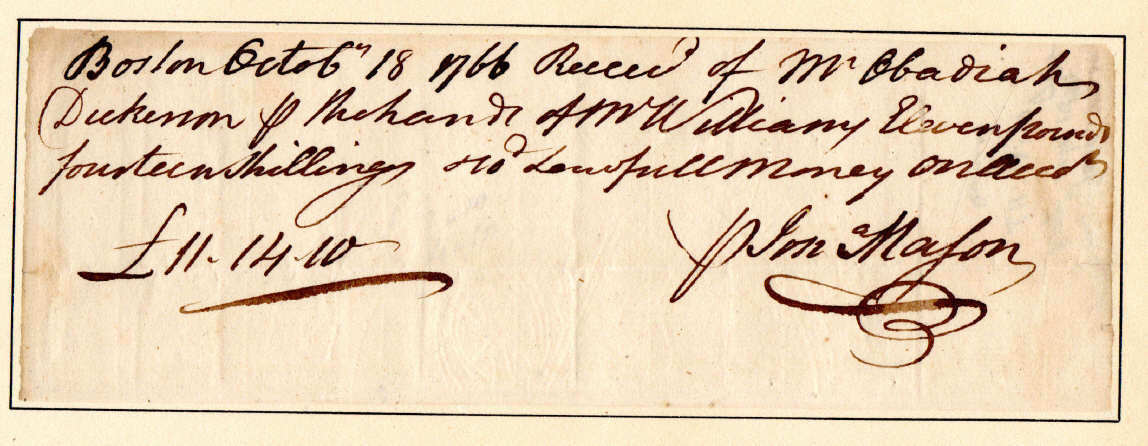 Boston Octobr 18 1766 Receivd of Mr Obadiah
Dickenson ⅌ the hands of Mr Williams Eleven pounds
fourteen shillings & 10d Lawfull Money on Acct
£11-14-10
⅌ Jona Mason